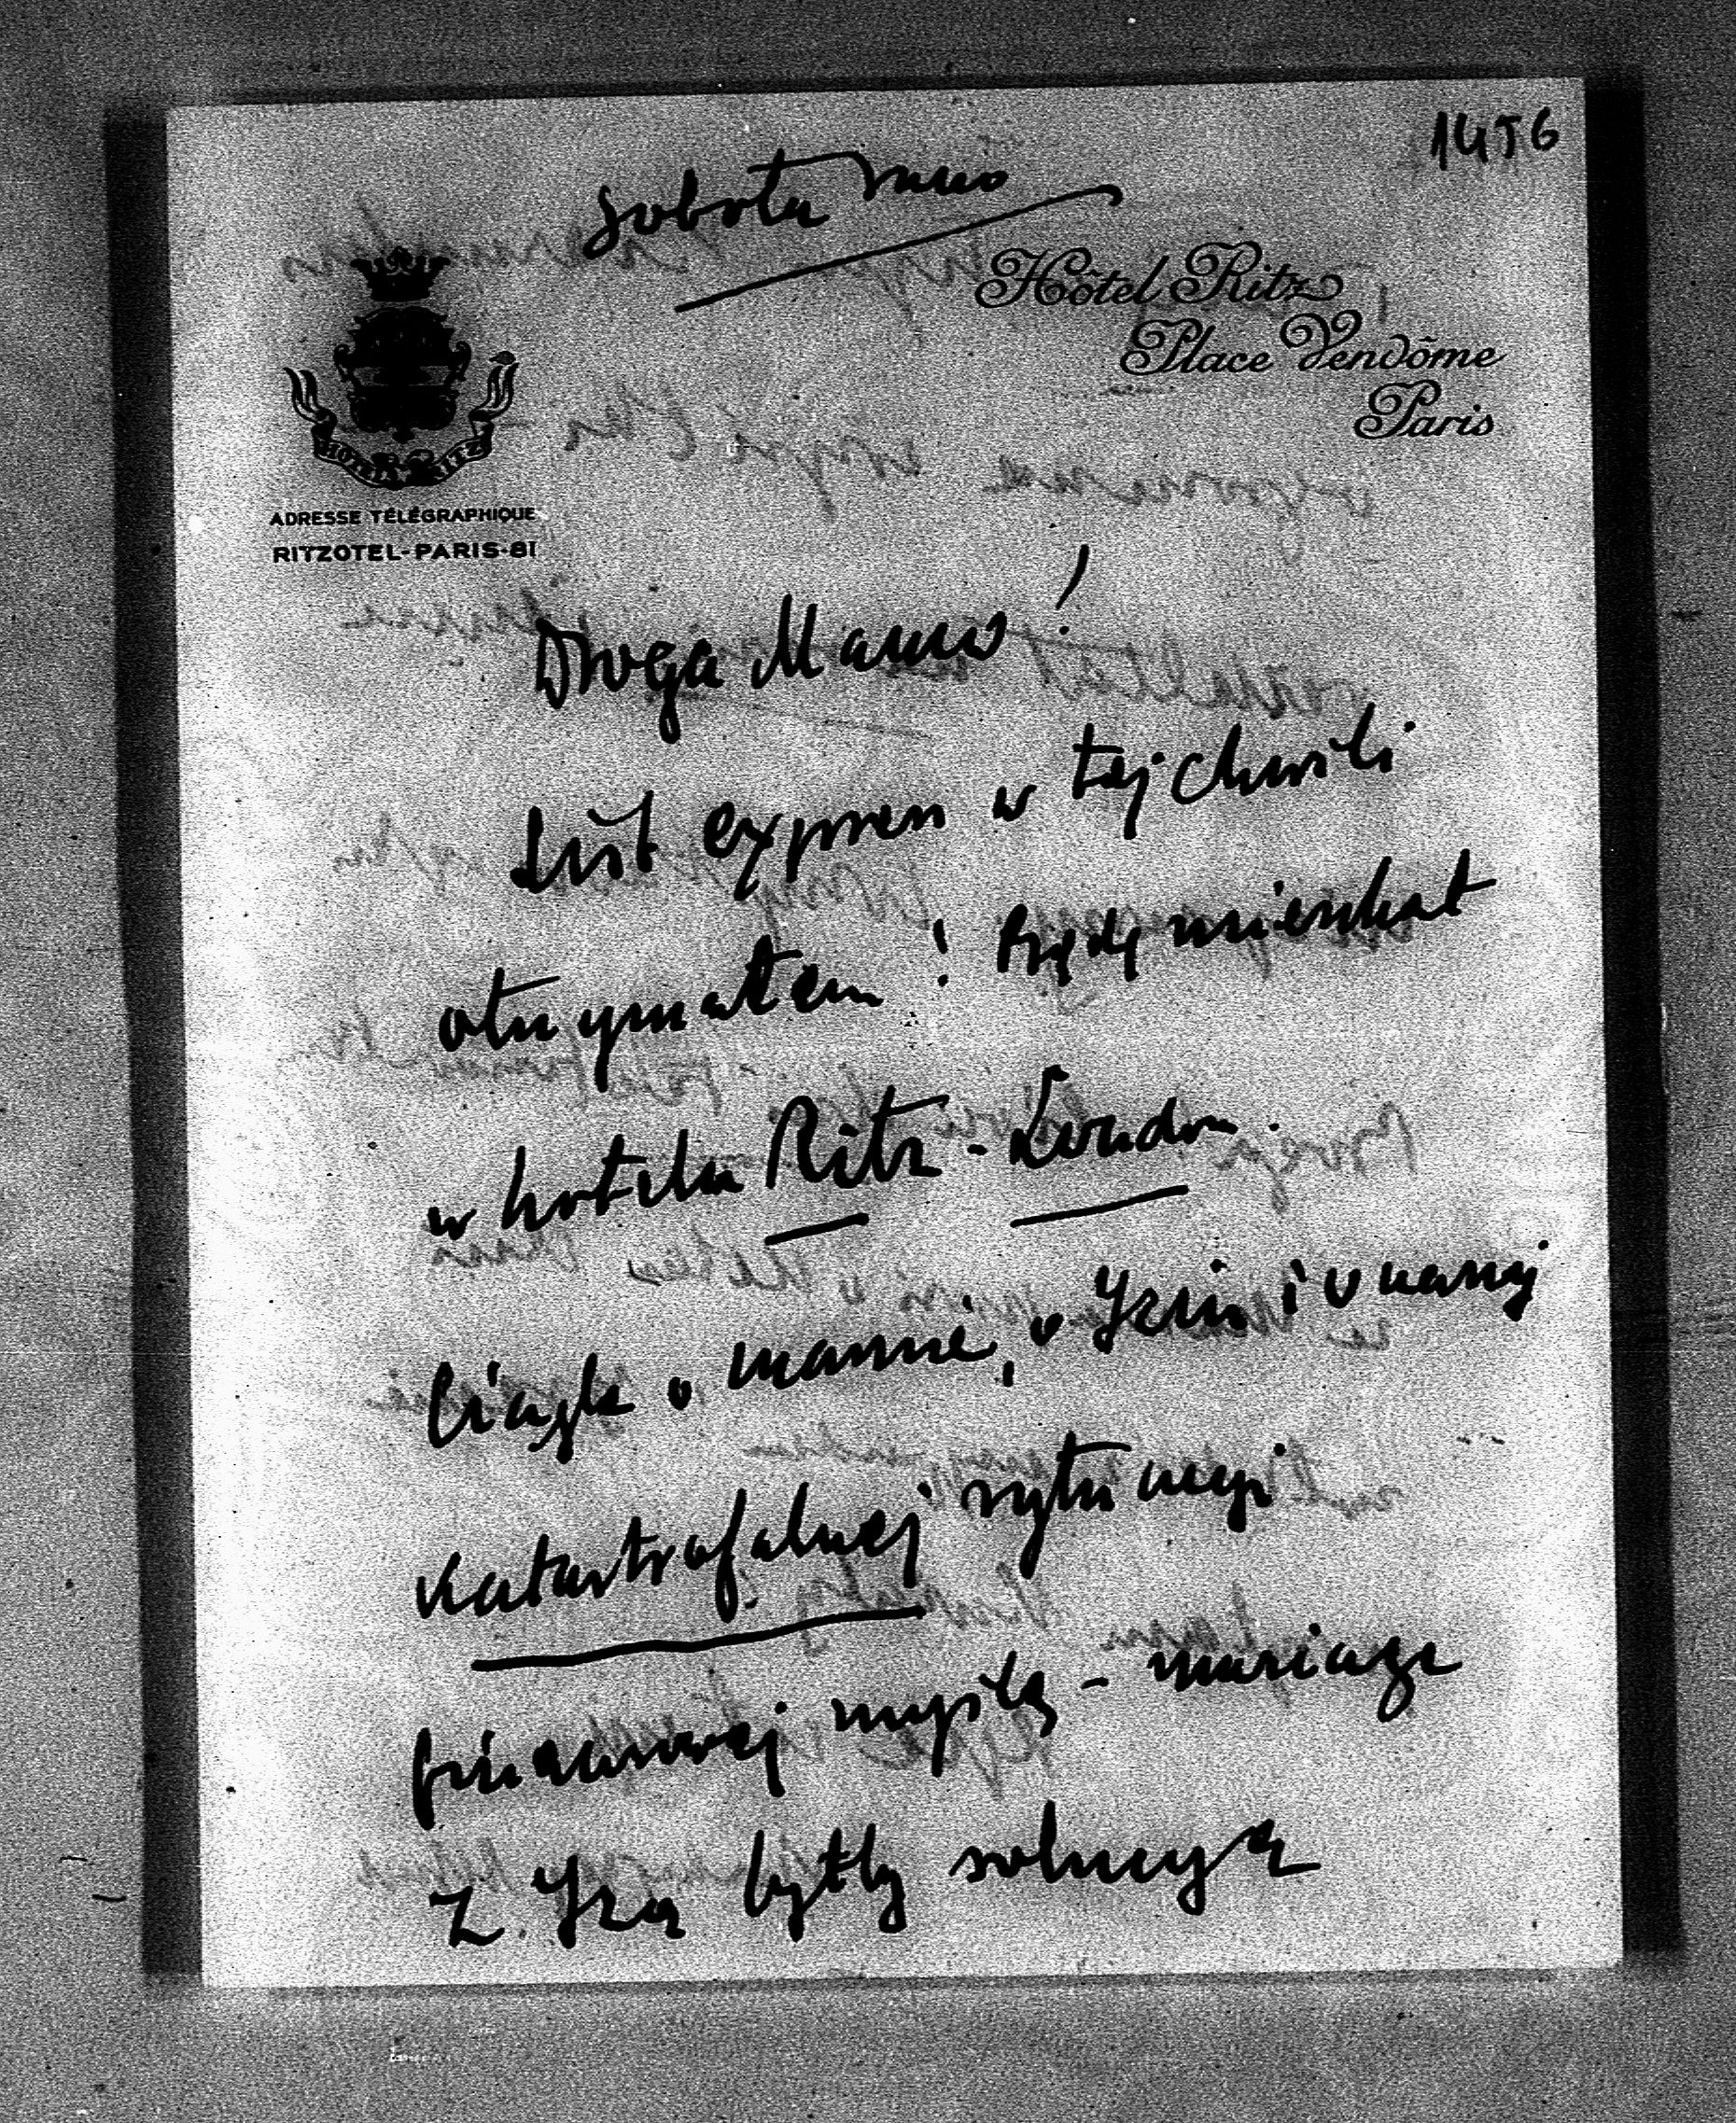 1456
sobota rano
Hôtel Ritz
Place Vendôme
Paris
HOTEL RITZ
ADRESSE TÉLÉGRAPHIQUE
RITZOTEL-PARIS-81
Droga Mamo!
List expres w tej chwili
otrzymałem! Będę mieszkał
w hotelu Ritz - London.
Ciągle o mamie, o Izin i o naszej
katastrofalnej sytuacyi
finansowej myślę - mariage
z Izą byłby solucyą